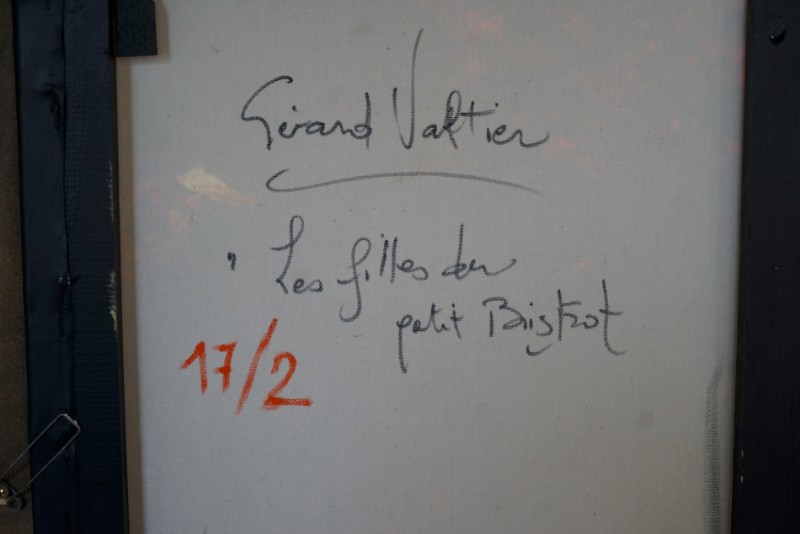 Gérard Valtier
" Les filles du
petit Bistrot
17/2